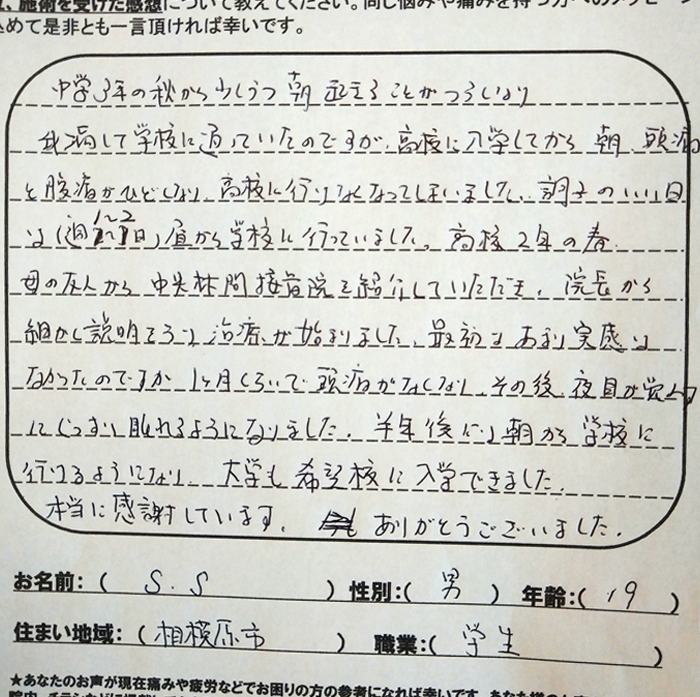 施術を受けた感想について教えてください。同じ悩みや痛みを持つ方へのメッセージ
込めて是非とも一言頂ければ幸いです。
中学3年の秋から少しづつ朝起きることがつらくなり
我慢して学校に通っていたのですが、高校に入学してから朝、頭痛
と腹痛がひどくなり、高校に行けなくなってしまいました。調子のいい日
は(週1~2日)昼から学校に行っていました。高校2年の春
母の友人から中央林間接骨院を紹介していただき、院長から
細かく説明をうけ治療が始まりました。最初はあまり実感は
なかったのですが1ヶ月くらいで頭痛がなくなり、その後、夜目が覚めず
にぐっすり眠れるようになりました。半年後には朝から学校に
行けるようになり、大学も希望校に入学できました。
本当に感謝しています。ありがとうございました。
お名前:( S.S ) 性別:( 男 ) 年齢:( 19 )
住まい地域:( 相模原市 ) 職業:( 学生 )
★あなたのお声が現在痛みや疲労などでお困りの方の参考になれば幸いです。